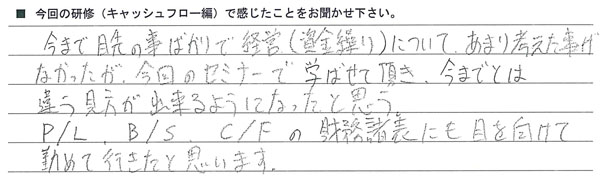 ■ 今回の研修（キャッシュフロー編）で感じたことをお聞かせ下さい。
今まで目先の事ばかりで経営（資金繰り）について、あまり考えた事が
なかったが、今回のセミナーで学ばせて頂き、今までとは
違う見方が出来るようになったと思う。
P/L、B/S、C/Fの財務諸表にも目を向けて
勤めて行きたと思います。